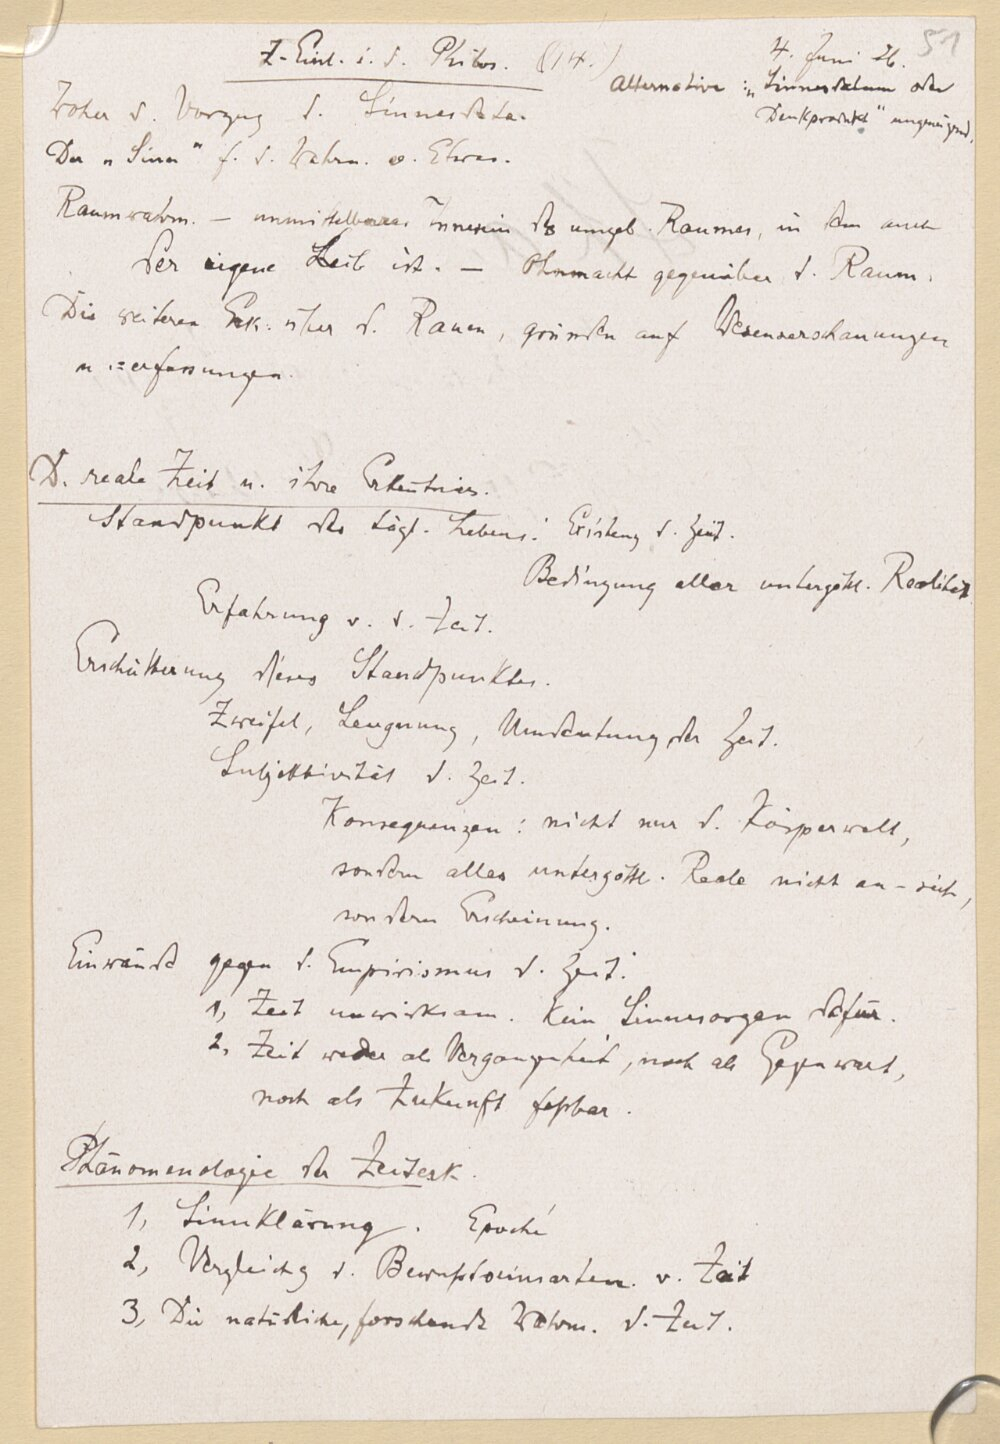 Z. Einl. i. d. Philos. (14.)
4. Juni 26.
51
Alternative: „Sinnesdatum oder
Denkprodukt" ungenügend.
Woher d. Vorzug d. Sinnesdata.
Der „Sinn" f. d. Wahrn. v. Etwas.
Raumwahrn. — unmittelbares Innesein des umgeb. Raumes, in dem auch
der eigene Leib ist. — Ohnmacht gegenüber d. Raum.
Die weiteren Erk. über d. Raum, gründen auf Wesenserschauungen
u. =erfassungen.
D. reale Zeit u. ihre Erkenntnis.
Standpunkt des tägl. Lebens: Existenz d. Zeit.
Bedingung aller untergöttl. Realität
Erfahrung v. d. Zeit.
Erschütterung dieses Standpunktes.
Zweifel, Leugnung, Umdeutung der Zeit.
Subjektivität d. Zeit.
Konsequenzen: nicht nur d. Körperwelt,
sondern alles untergöttl. Reale nicht an-sich,
sondern Erscheinung.
Einwände gegen d. Empirismus d. Zeit:
1, Zeit unwirksam. Kein Sinnesorgan dafür.
2. Zeit weder als Vergangenheit, noch als Gegenwart,
noch als Zukunft faßbar.
Phänomenologie der Zeiterk.
1, Sinnklärung. Epoché
2, Vergleichg d. Bewußtseinsarten v. Zeit
3, Die natürliche, forschende Wahrn. d. Zeit.